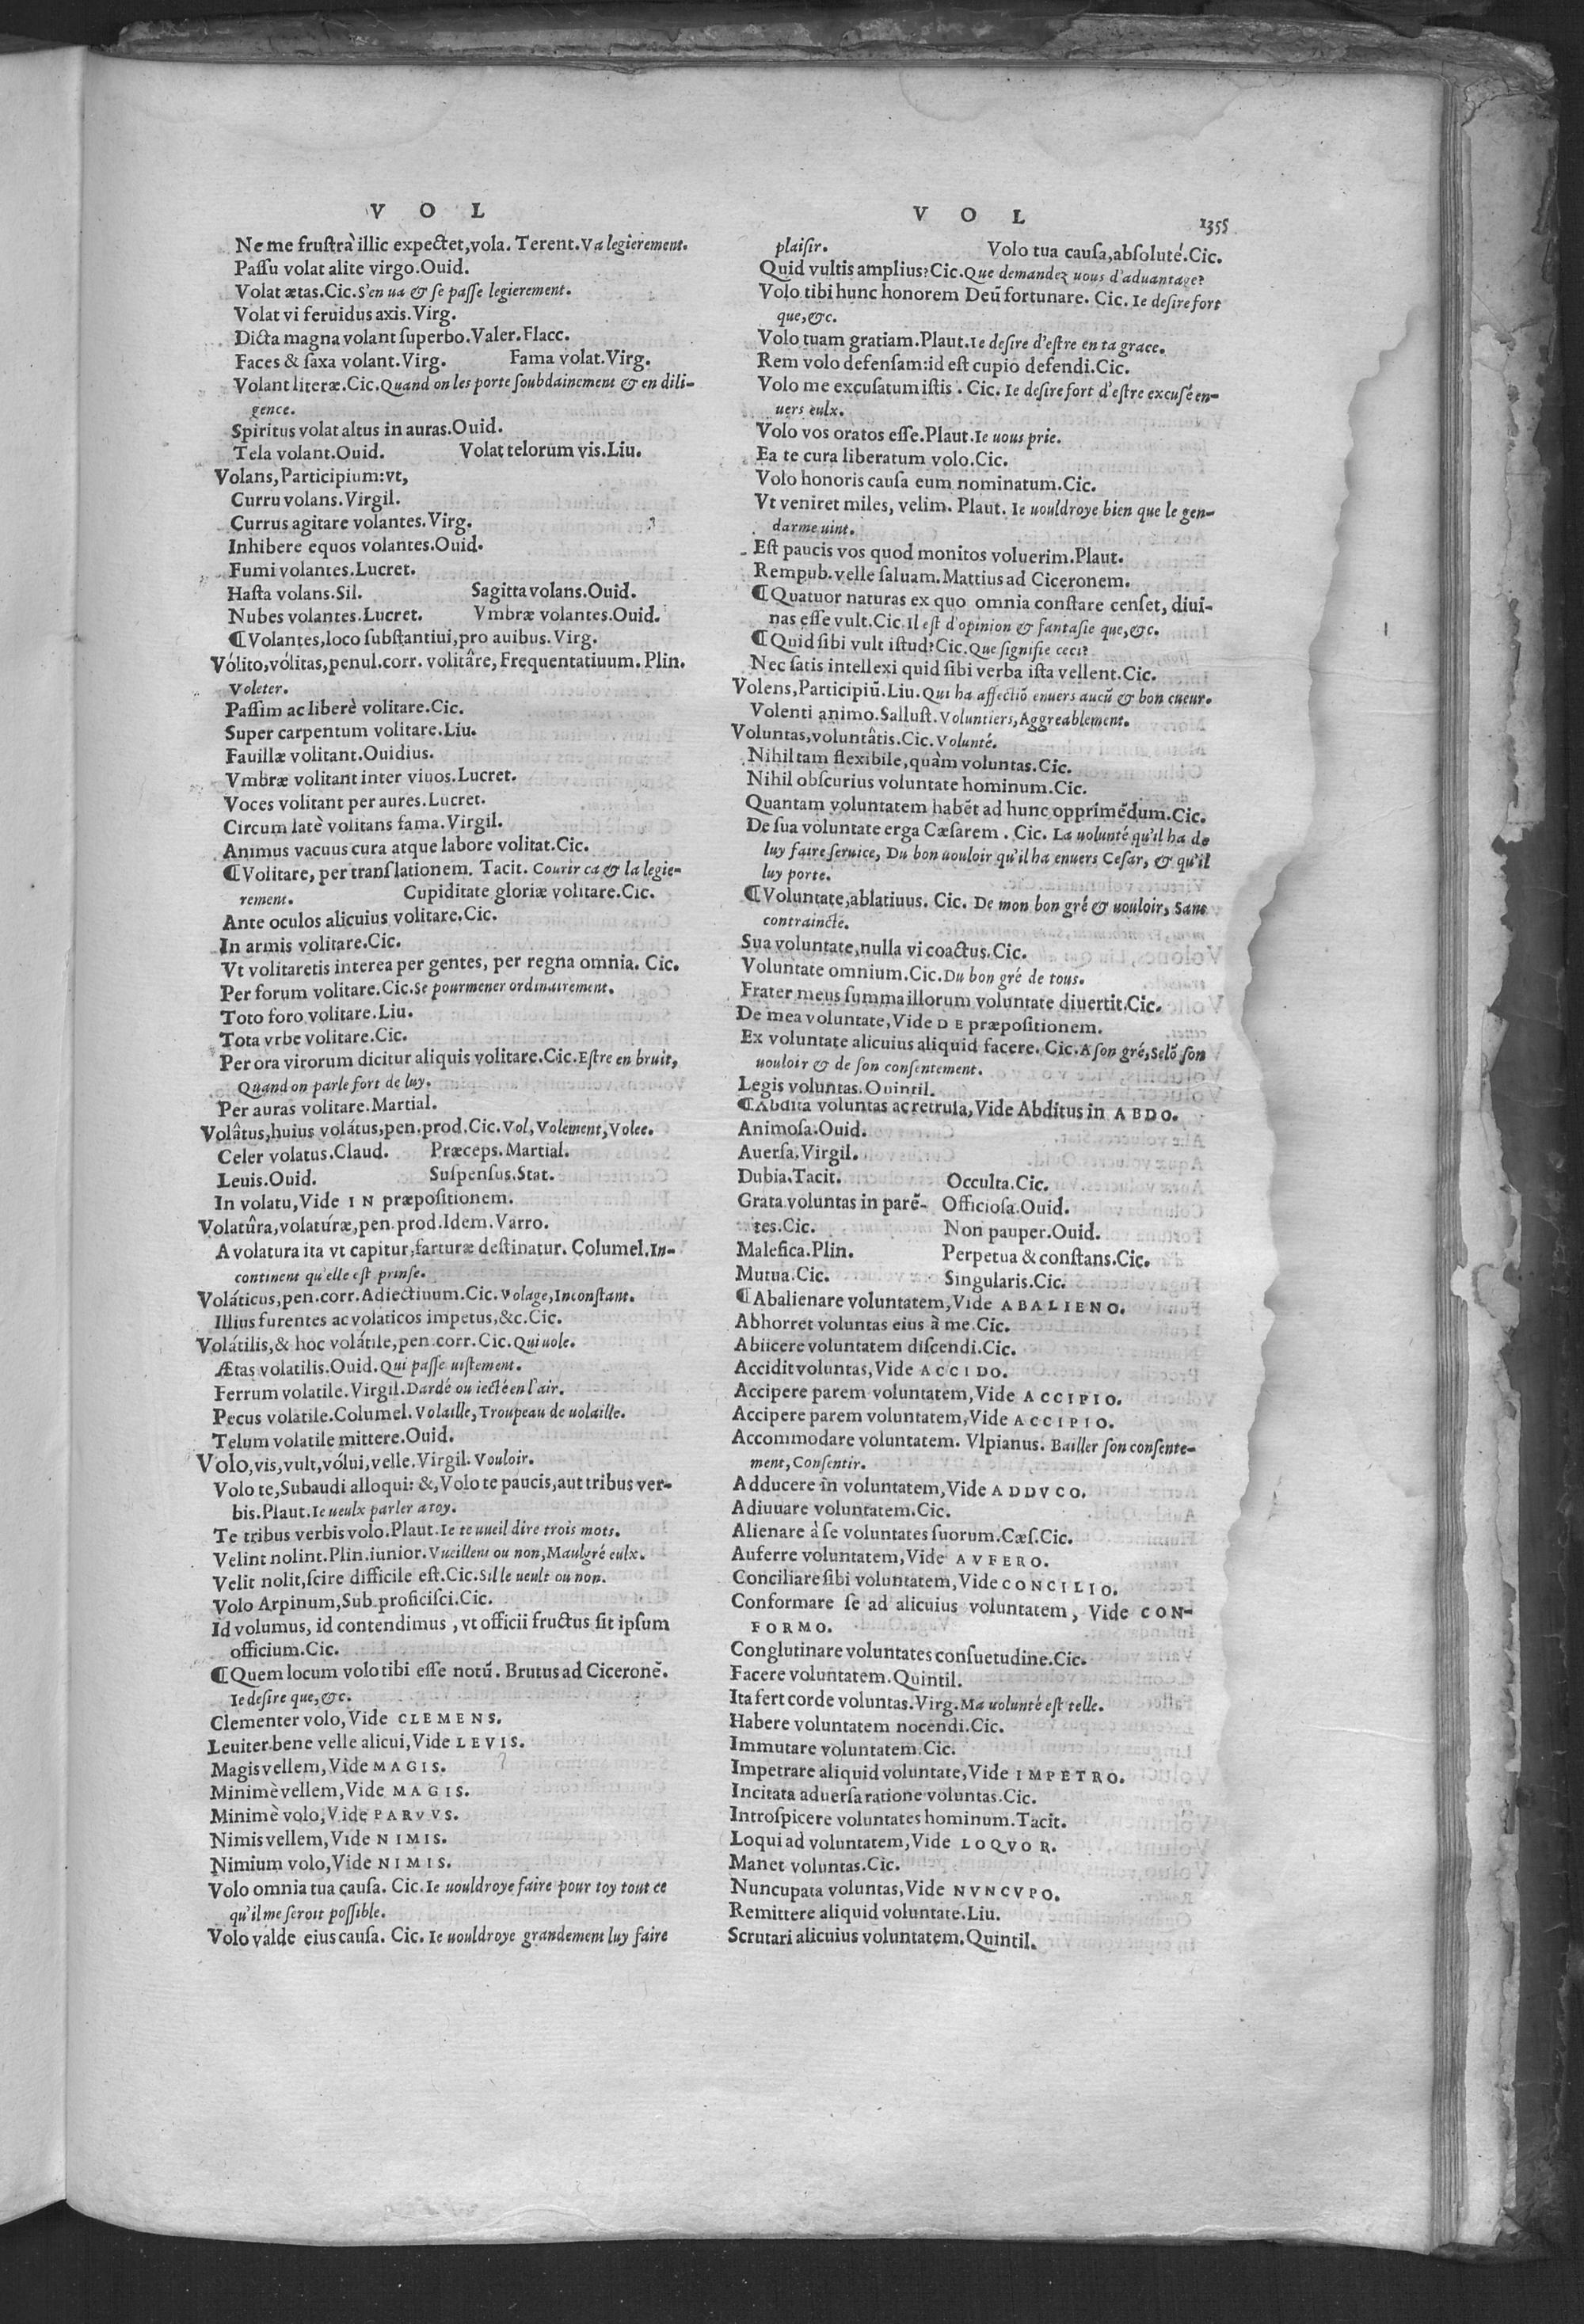 V O L
Ne me frustrà illic expectet, vola. Terent. Va legierement.
Passu volat alite virgo. Ouid.
Volat ætas. Cic. S'en ua & se passe legierement.
Volat vi feruidus axis. Virg.
Dicta magna volant superbo. Valer. Flacc.
Faces & saxa volant. Virg. Fama volat. Virg.
Volant literæ. Cic. Quand on les porte soubdainement & en dili-
gence.
Spiritus volat altus in auras. Ouid.
Tela volant. Ouid. Volat telorum vis. Liu.
Volans, Participium: vt,
Curru volans. Virgil.
Currus agitare volantes. Virg.
Inhibere equos volantes. Ouid.
Fumi volantes. Lucret.
Hasta volans. Sil. Sagitta volans. Ouid.
Nubes volantes. Lucret. Vmbræ volantes. Ouid.
¶ Volantes, loco substantiui, pro auibus. Virg.
Vólito, vólitas, penul. corr. volitâre, Frequentatiuum. Plin.
Voleter.
Passim ac liberè volitare. Cic.
Super carpentum volitare. Liu.
Fauillæ volitant. Ouidius.
Vmbræ volitant inter viuos. Lucret.
Voces volitant per aures. Lucret.
Circum latè volitans fama. Virgil.
Animus vacuus cura atque labore volitat. Cic.
¶ Volitare, per translationem. Tacit. Courir ca & la legie-
rement. Cupiditate gloriæ volitare. Cic.
Ante oculos alicuius volitare. Cic.
In armis volitare. Cic.
Vt volitaretis interea per gentes, per regna omnia. Cic.
Per forum volitare. Cic. Se pourmener ordinairement.
Toto foro volitare. Liu.
Tota vrbe volitare. Cic.
Per ora virorum dicitur aliquis volitare. Cic. Estre en bruit,
Quand on parle fort de luy.
Per auras volitare. Martial.
Volâtus, huius volátus, pen. prod. Cic. Vol, Volement, Volee.
Celer volatus. Claud. Præceps. Martial.
Leuis. Ouid. Suspensus. Stat.
In volatu, Vide IN præpositionem.
Volatûra, volatúræ, pen. prod. Idem. Varro.
A volatura ita vt capitur, farturæ destinatur. Columel. In-
continent qu'elle est prinse.
Voláticus, pen. corr. Adiectiuum. Cic. Volage, Inconstant.
Illius furentes ac volaticos impetus, &c. Cic.
Volátilis, & hoc volátile, pen. corr. Cic. Qui uole.
Ætas volatilis. Ouid. Qui passe uistement.
Ferrum volatile. Virgil. Dardé ou iecté en l'air.
Pecus volatile. Columel. Volaille, Troupeau de uolaille.
Telum volatile mittere. Ouid.
Volo, vis, vult, vólui, velle. Virgil. Vouloir.
Volo te, Subaudi alloqui: &, Volo te paucis, aut tribus ver-
bis. Plaut. Ie ueulx parler a toy.
Te tribus verbis volo. Plaut. Ie te uueil dire trois mots.
Velint nolint. Plin. iunior. Vueillent ou non, Maulgré eulx.
Velit nolit, scire difficile est. Cic. Sil le ueult ou non.
Volo Arpinum, Sub. proficisci. Cic.
Id volumus, id contendimus, vt officii fructus sit ipsum
officium. Cic.
¶ Quem locum volo tibi esse notũ. Brutus ad Ciceronẽ.
Ie desire que, &c.
Clementer volo, Vide CLEMENS.
Leuiter bene velle alicui, Vide LEVIS.
Magis vellem, Vide MAGIS.
Minimè vellem, Vide MAGIS.
Minimè volo, Vide PARVVS.
Nimis vellem, Vide NIMIS.
Nimium volo, Vide NIMIS.
Volo omnia tua causa. Cic. Ie uouldroye faire pour toy tout ce
qu'il me seroit possible.
Volo valde eius causa. Cic. Ie uouldroye grandement luy faire
V O L 1355
plaisir. Volo tua causa, absoluté. Cic.
Quid vultis amplius? Cic. Que demandez uous d'aduantage?
Volo tibi hunc honorem Deũ fortunare. Cic. Ie desire fort
que, &c.
Volo tuam gratiam. Plaut. Ie desire d'estre en ta grace.
Rem volo defensam: id est cupio defendi. Cic.
Volo me excusatum istis. Cic. Ie desire fort d'estre excusé en-
uers eulx.
Volo vos oratos esse. Plaut. Ie uous prie.
Ea te cura liberatum volo. Cic.
Volo honoris causa eum nominatum. Cic.
Vt veniret miles, velim. Plaut. Ie uouldroye bien que le gen-
darme uint.
Est paucis vos quod monitos voluerim. Plaut.
Rempub. velle saluam. Mattius ad Ciceronem.
¶ Quatuor naturas ex quo omnia constare censet, diui-
nas esse vult. Cic. Il est d'opinion & fantasie que, &c.
¶ Quid sibi vult istud? Cic. Que signifie ceci?
Nec satis intellexi quid sibi verba ista vellent. Cic.
Volens, Participiũ. Liu. Qui ha affectiõ enuers aucũ & bon cueur.
Volenti animo. Sallust. Voluntiers, Aggreablement.
Voluntas, voluntâtis. Cic. Volunté.
Nihil tam flexibile, quàm voluntas. Cic.
Nihil obscurius voluntate hominum. Cic.
Quantam voluntatem habẽt ad hunc opprimẽdum. Cic.
De sua voluntate erga Cæsarem. Cic. La uolunté qu'il ha de
luy faire seruice, Du bon uouloir qu'il ha enuers Cesar, & qu'il
luy porte.
¶ Voluntate, ablatiuus. Cic. De mon bon gré & uouloir, Sans
contraincte.
Sua voluntate, nulla vi coactus. Cic.
Voluntate omnium. Cic. Du bon gré de tous.
Frater meus summa illorum voluntate diuertit. Cic.
De mea voluntate, Vide DE præpositionem.
Ex voluntate alicuius aliquid facere. Cic. A son gré, Selõ son
uouloir & de son consentement.
Legis voluntas. Quintil.
¶ Abdita voluntas ac retrusa, Vide Abditus in ABDO.
Animosa. Ouid.
Auersa. Virgil.
Dubia. Tacit. Occulta. Cic.
Grata voluntas in parẽ- Officiosa. Ouid.
tes. Cic. Non pauper. Ouid.
Malefica. Plin. Perpetua & constans. Cic.
Mutua. Cic. Singularis. Cic.
¶ Abalienare voluntatem, Vide ABALIENO.
Abhorret voluntas eius à me. Cic.
Abiicere voluntatem discendi. Cic.
Accidit voluntas, Vide ACCIDO.
Accipere parem voluntatem, Vide ACCIPIO.
Accipere parem voluntatem, Vide ACCIPIO.
Accommodare voluntatem. Vlpianus. Bailler son consente-
ment, Consentir.
Adducere in voluntatem, Vide ADDVCO.
Adiuuare voluntatem. Cic.
Alienare à se voluntates suorum. Cæs. Cic.
Auferre voluntatem, Vide AVFERO.
Conciliare sibi voluntatem, Vide CONCILIO.
Conformare se ad alicuius voluntatem, Vide CON-
FORMO.
Conglutinare voluntates consuetudine. Cic.
Facere voluntatem. Quintil.
Ita fert corde voluntas. Virg. Ma uolunté est telle.
Habere voluntatem nocendi. Cic.
Immutare voluntatem. Cic.
Impetrare aliquid voluntate, Vide IMPETRO.
Incitata aduersa ratione voluntas. Cic.
Introspicere voluntates hominum. Tacit.
Loqui ad voluntatem, Vide LOQVOR.
Manet voluntas. Cic.
Nuncupata voluntas, Vide NVNCVPO.
Remittere aliquid voluntate. Liu.
Scrutari alicuius voluntatem. Quintil.